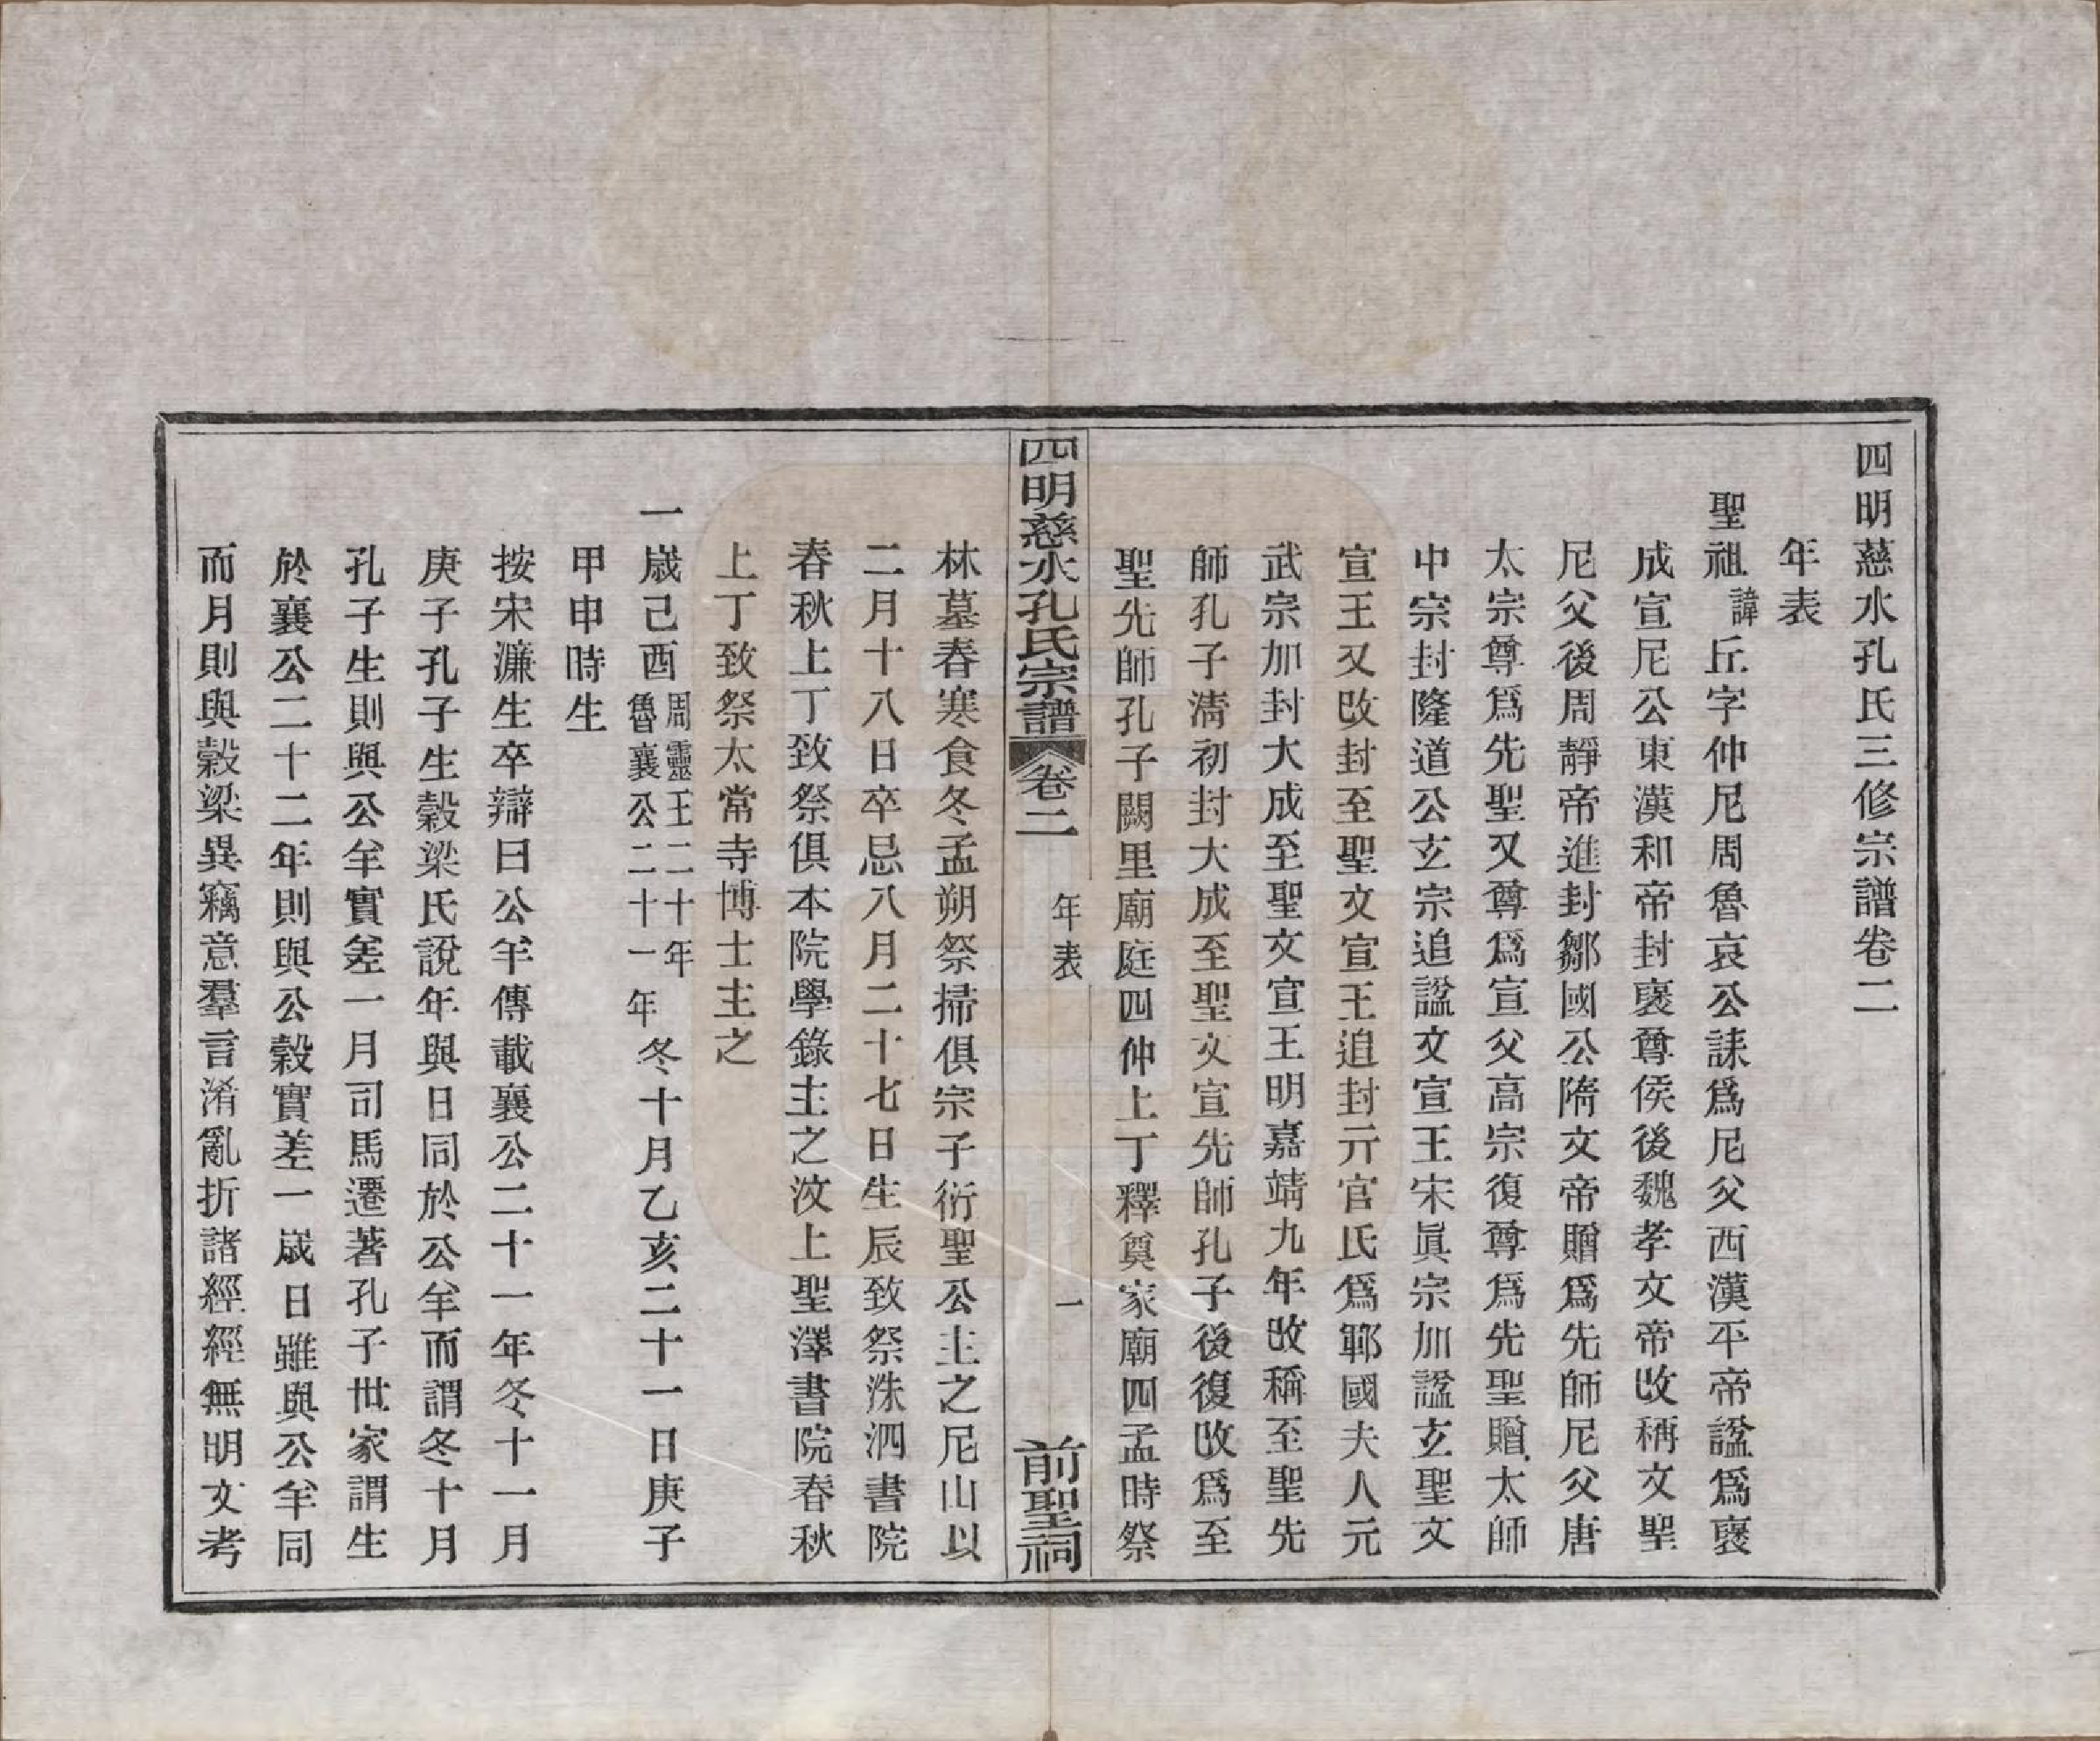 四明慈水孔氏三修宗譜卷二
年表
聖祖諱丘字仲尼周魯哀公誄爲尼父西漢平帝諡爲襃
成宣尼公東漢和帝封襃尊侯後魏孝文帝改稱文聖
尼父後周靜帝進封鄒國公隋文帝贈爲先師尼父唐
太宗尊爲先聖又尊爲宣父高宗復尊爲先聖贈太師
中宗封隆道公玄宗追諡文宣王宋眞宗加諡玄聖文
宣王又改封至聖文宣王追封亓官氏爲鄆國夫人元
武宗加封大成至聖文宣王明嘉靖九年改稱至聖先
師孔子淸初封大成至聖文宣先師孔子後復改爲至
聖先師孔子闕里廟庭四仲上丁釋奠家廟四孟時祭
四明慈水孔氏宗譜
卷二
年表
一
前聖祠
林墓春寒食冬孟朔祭掃俱宗子衍聖公主之尼山以
二月十八日卒忌八月二十七日生辰致祭洙泗書院
春秋上丁致祭俱本院學錄主之汶上聖澤書院春秋
上丁致祭太常寺博士主之
一歲己酉周靈王二十年魯襄公二十一年冬十月乙亥二十一日庚子
甲申時生
按宋濂生卒辯曰公羊傳載襄公二十一年冬十一月
庚子孔子生穀梁氏說年與日同於公羊而謂冬十月
孔子生則與公羊實差一月司馬遷著孔子世家謂生
於襄公二十二年則與公穀實差一歲日雖與公羊同
而月則與穀梁異竊意羣言淆亂折諸經經無明文考